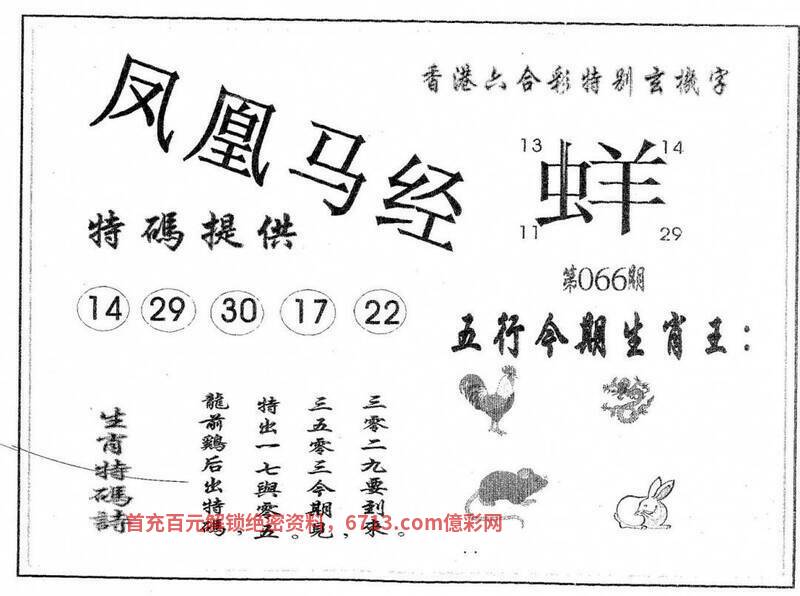 凤凰马经
香港六合彩特别玄機字
13 14
蛘
11 29
特碼提供
第066期
14 29 30 17 22
五行今期生肖王：
三零二九要到來。
三五零三今期見，
特出一七與零五。
龍前鷄后出特碼，
生肖特碼詩
首充百元解锁绝密资料，6713.com億彩网